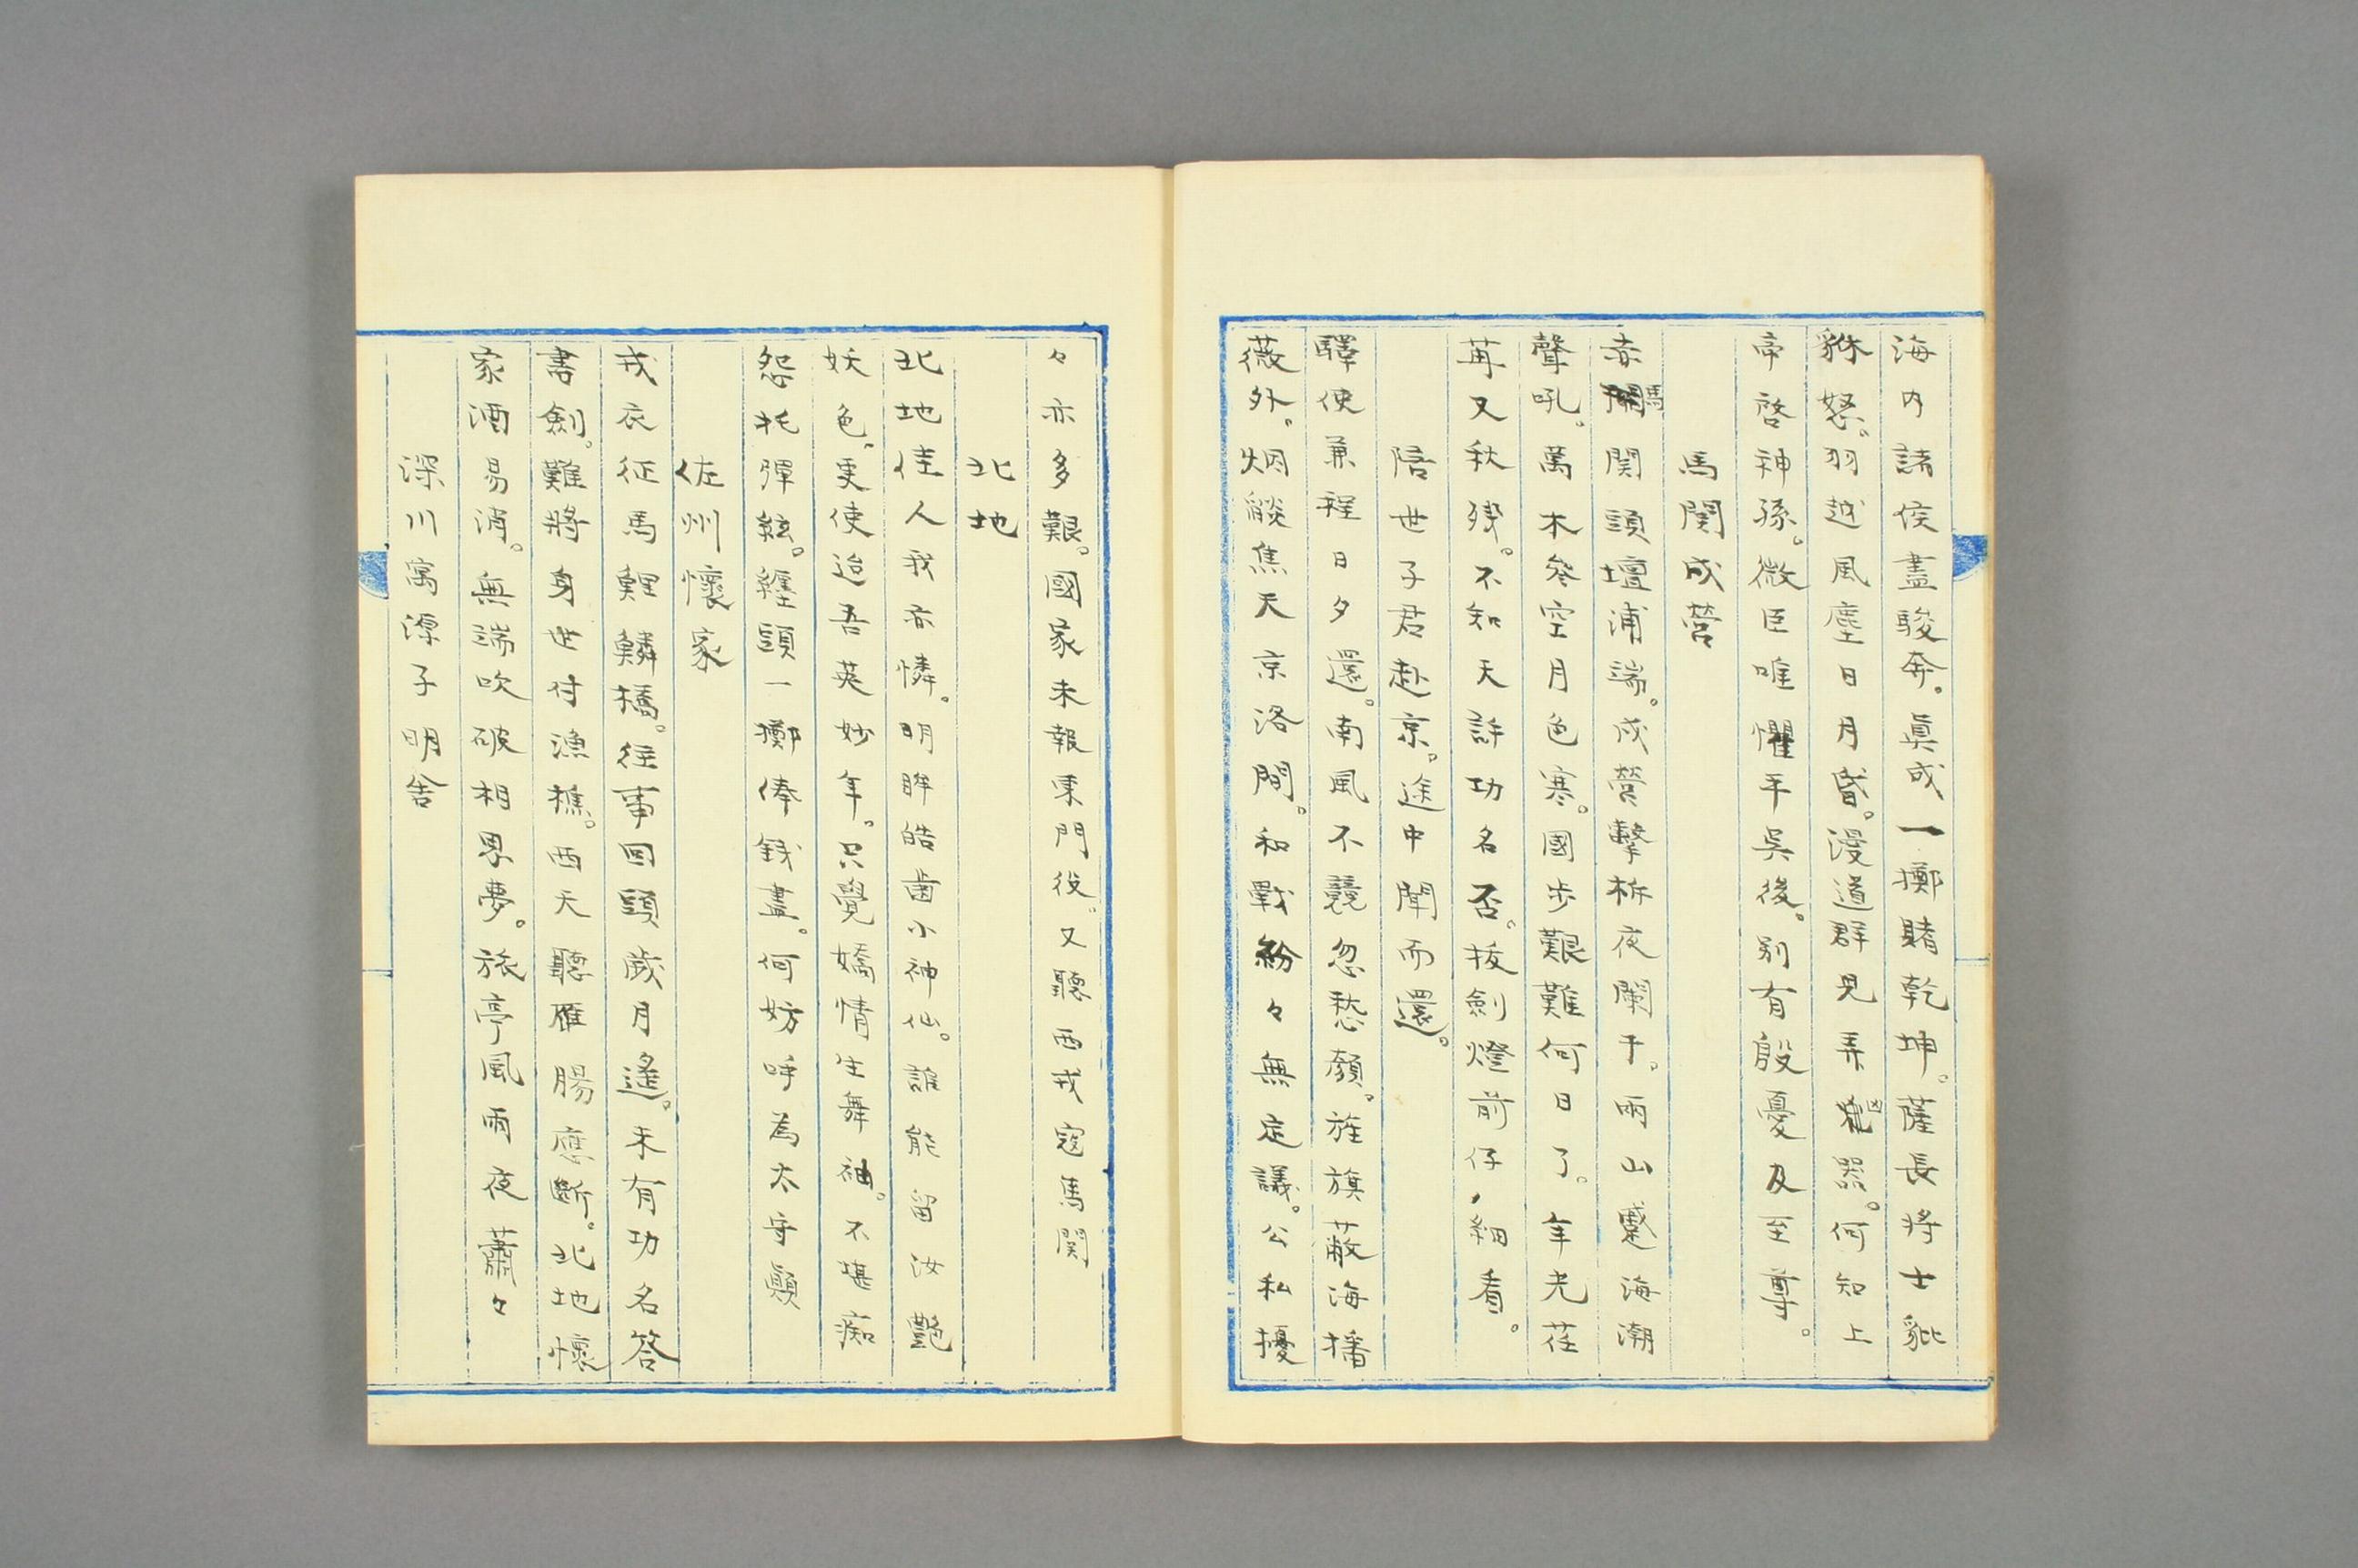 海内諸侯盡駿奔。眞成一擲賭乾坤。薩長將士貔
貅怒。羽越風塵日月昏。漫道群児弄兇器。何知上
帝啓神孫。微臣唯懼平呉後。別有殷憂及至尊。
馬関戍営
赤馬関頭壇浦端。戍営撃柝夜闌干。雨山蹙海潮
聲吼。萬木參空月色寒。國歩艱難何日了。年光荏
苒又秋残。不知天許功名否。抜劍燈前仔細看。
陪世子君赴京。途中聞而還。
驛使兼程日夕還。南風不競忽愁顔。旌旗蔽海播
薇外。烟燄焦天京洛間。和戰紛々無定議。公私擾
々亦多艱。國家未報東門役。又聽西戎寇馬関
北地
北地佳人我亦憐。明眸皓歯小神仙。誰能留汝艶
妖色。更使迨吾英妙年。只覺嬌情生舞袖。不堪痴
怨托弾絃。纏頭一擲俸銭盡。何妨呼為太守顛
佐州懷家
戎衣征馬鯉鱗橋。往事回頭歳月遙。未有功名答
書劍。難將身世付漁樵。西天聽雁腸應斷。北地懷
家酒易消。無端吹破相思夢。旅亭風雨夜蕭々
深川寓源子明舎